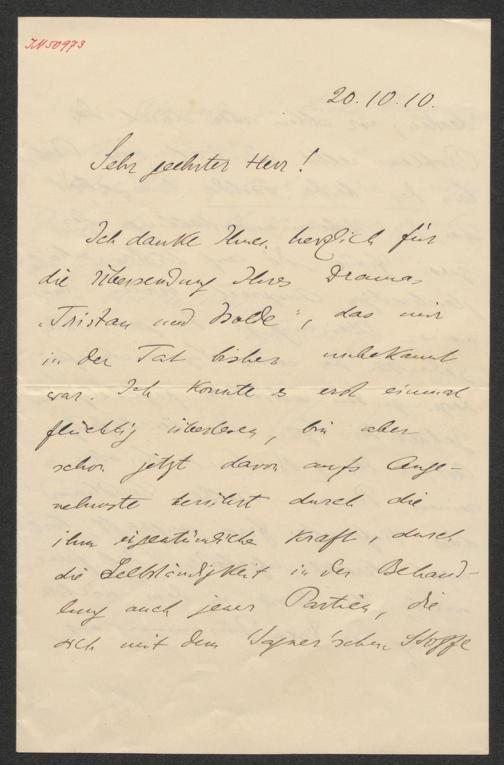 IN 50973
20.10.10.
Sehr geehrter Herr!
Ich danke Ihnen herzlich für
die Übersendung Ihres Dramas
„Tristan und Isolde“, das mir
in der Tat bisher unbekannt
war. Ich konnte es erst einmal
flüchtig überlesen, bin aber
schon jetzt davon aufs Ange-
nehmste berührt durch die
ihm eigentümliche Kraft, durch
die Selbständigkeit in der Behand-
lung auch jener Partien, die
sich mit dem Wagner'schen Stoffe